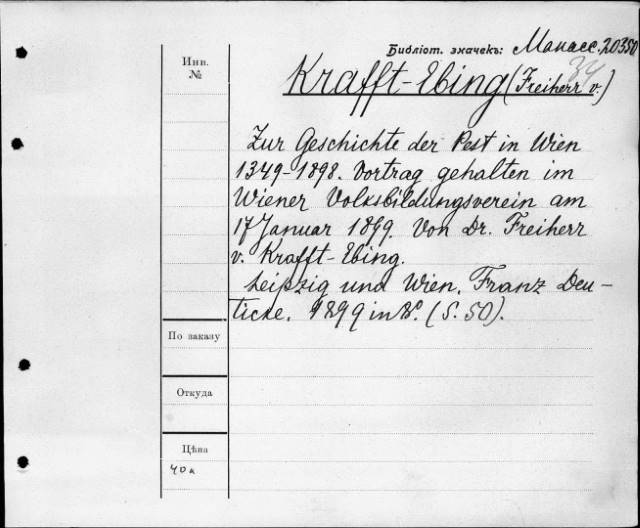 Библіот. значекъ: Манасс. 20350
34
Инв.
№
Krafft-Ebing (Freiherr v.)
Zur Geschichte der Pest in Wien
1349-1898. Vortrag gehalten im
Wiener Volksbildungsverein am
17 Januar 1899. Von Dr. Freiherr
v. Krafft-Ebing.
Leipzig und Wien. Franz Deu-
ticke. 1899 in 8°. (S. 50).
По заказу
Откуда
Цѣна
40к